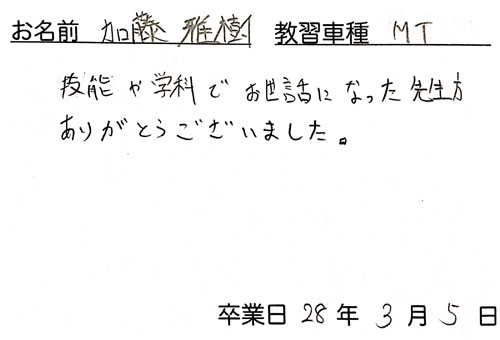 お名前 加藤 雅樹 教習車種 MT
技能や学科でお世話になった先生方
ありがとうございました。
卒業日 28 年 3 月 5 日